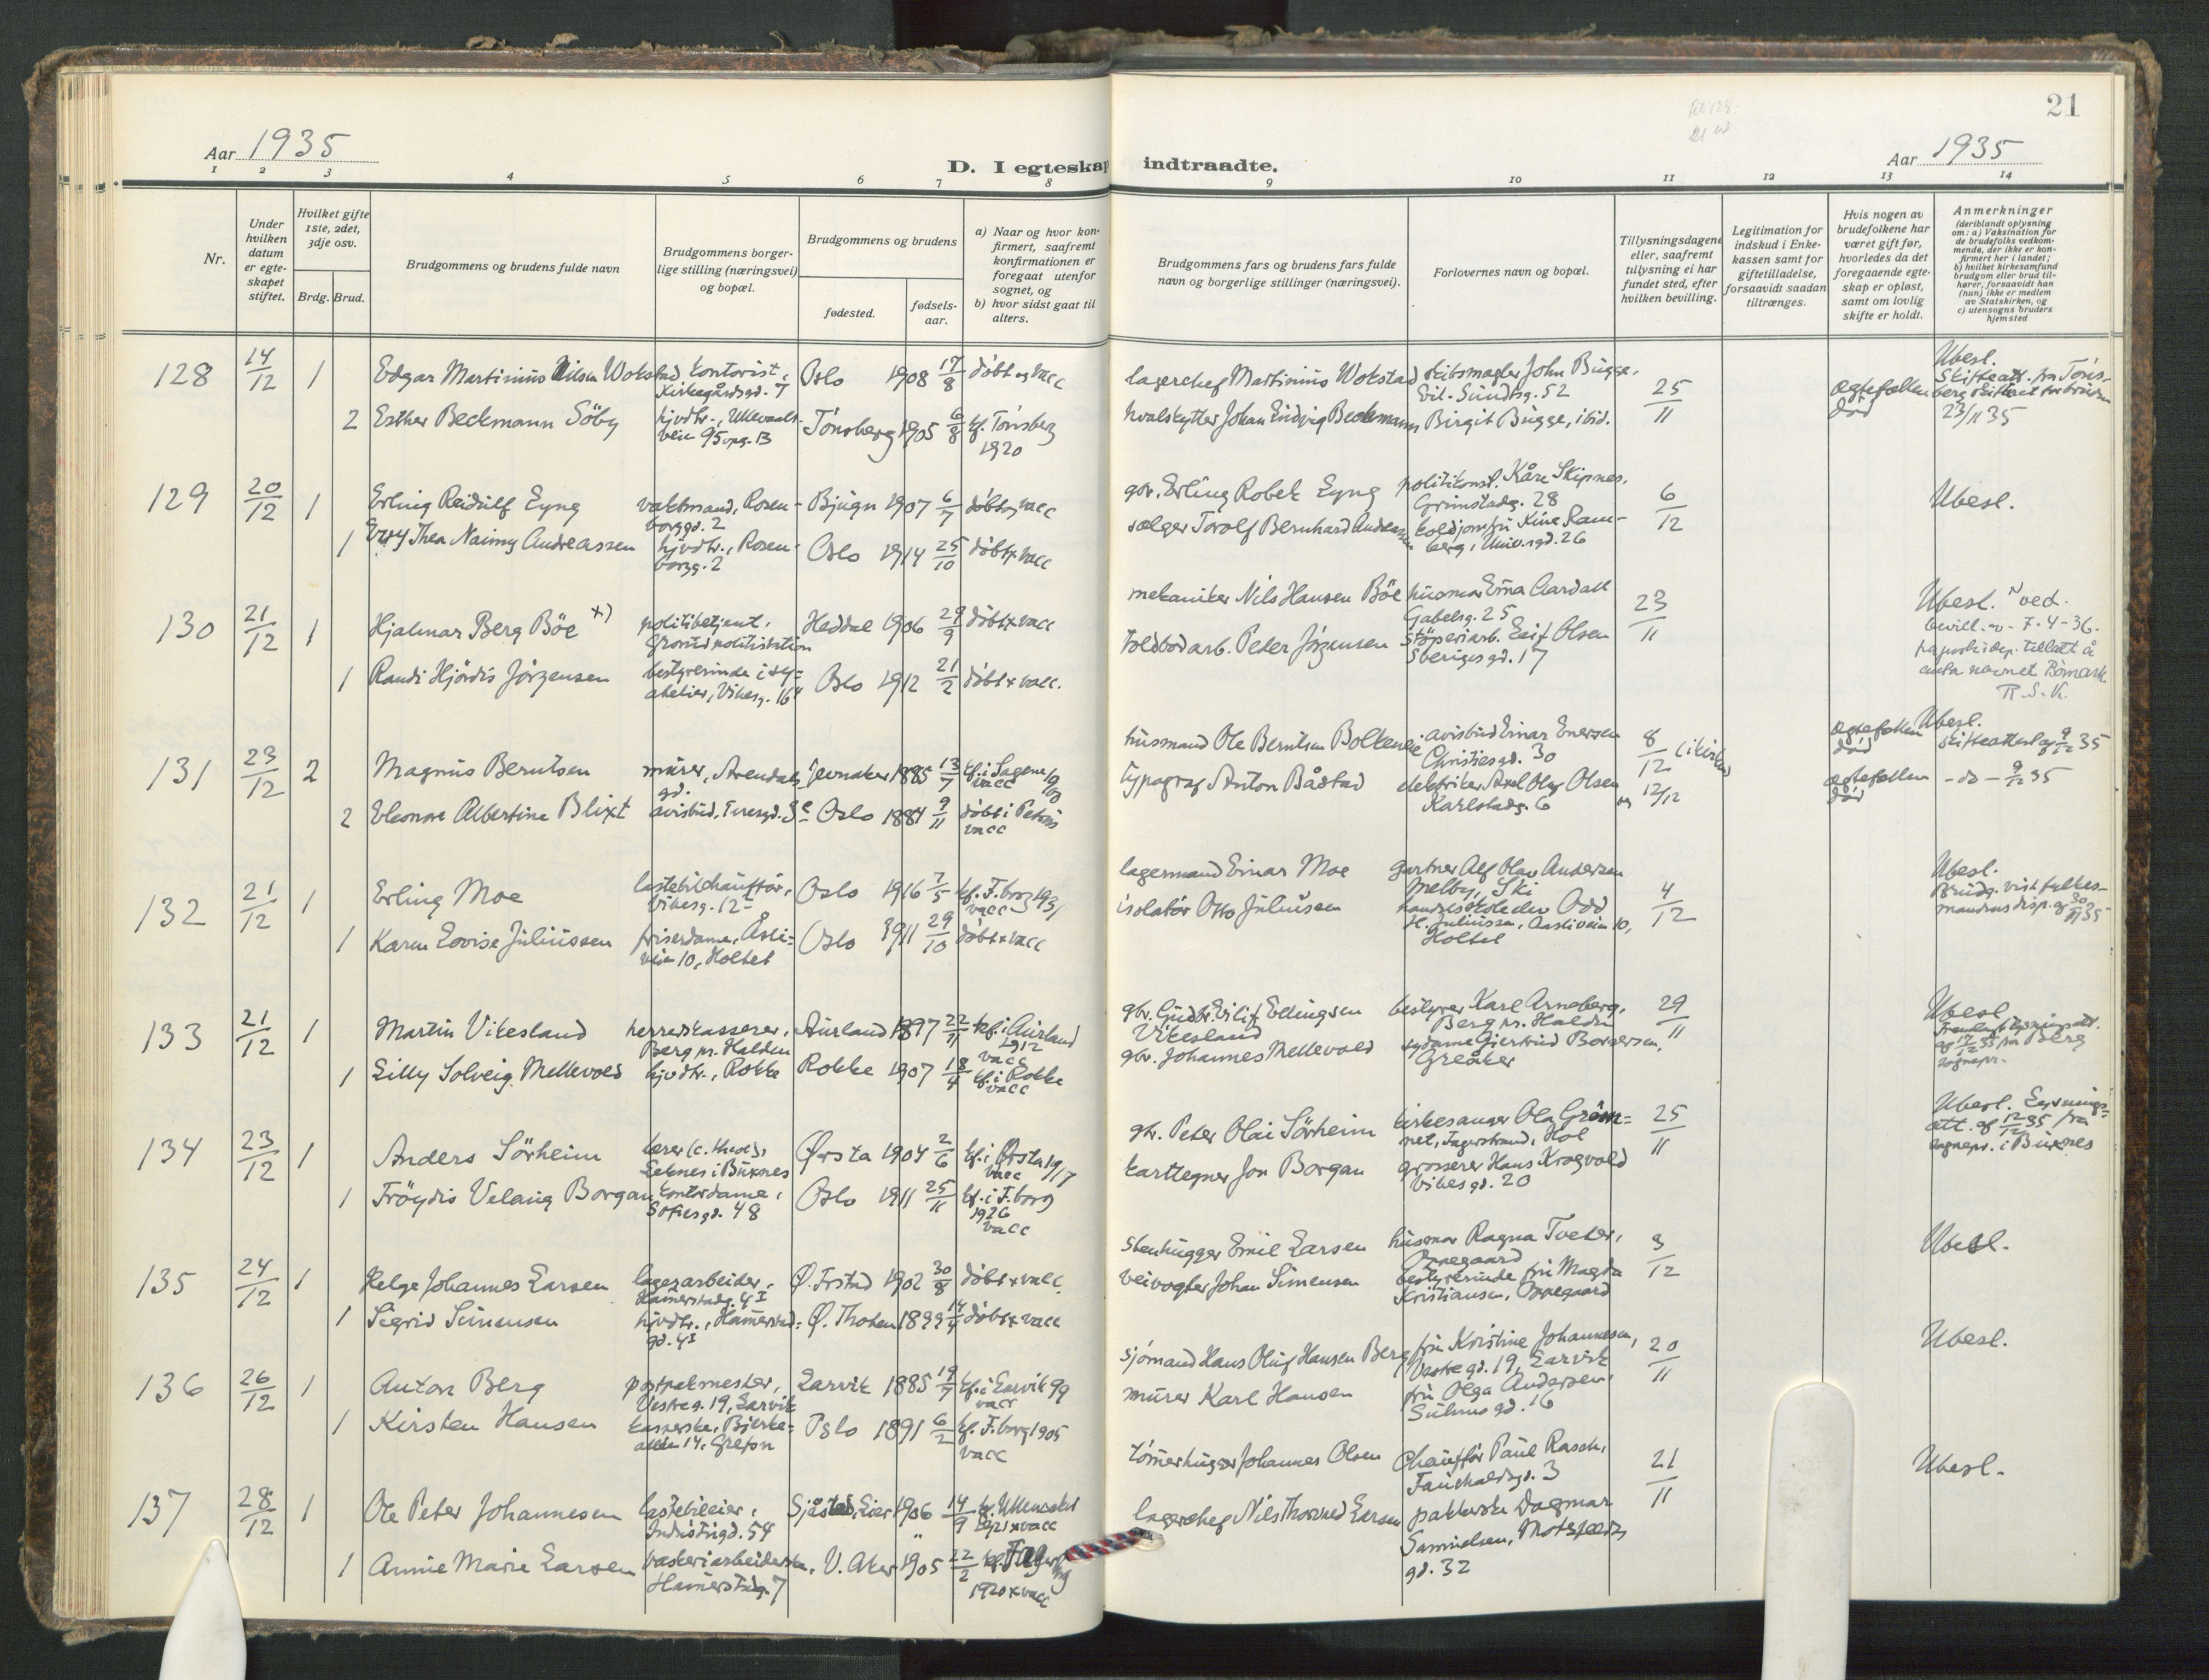 21
Aar 1935
D. I egteskap indtraadte.
Aar 1935
1 2 3 4 5 6 7 8 9 10 11 12 13 14
Nr.
Under hvilken datum er egte-skapet stiftet.
Hvilket gifte 1ste, 2det, 3dje osv.
Brdg. Brud.
Brudgommens og brudens fulde navn
Brudgommens borger-lige stilling (næringsvei) og bopæl.
Brudgommens og brudens
fødested.
fødsels-aar.
a) Naar og hvor kon-firmert, saafremt konfirmationen er foregaat utenfor sognet, og
b) hvor sidst gaat til alters.
Brudgommens fars og brudens fars fulde navn og borgerlige stillinger (næringsvei).
Forlovernes navn og bopæl.
Tillysningsdagene eller, saafremt tillysning ei har fundet sted, efter hvilken bevilling.
Legitimation for indskud i Enke-kassen samt for giftetilladelse, forsaavidt saadan tiltrænges.
Hvis nogen av brudefolkene har været gift før, hvorledes da det foregaaende egte-skap er opløst, samt om lovlig skifte er holdt.
Anmerkninger (deriblandt oplysning om: a) Vaksination for de brudefolks vedkom-mende, der ikke er kon-firmert her i landet; b) hvilket kirkesamfund brudgom eller brud til-hører, forsaavidt han (hun) ikke er medlem av Statskirken, og c) utensogns bruders hjemsted
128 14/12 1 Edgar Martinius Nilsen Wokstad kontorist, Kirkegårdsgd. 7 Oslo 1908 17/8 döbt og vacc lagerchef Martinius Wokstad skibsmegler John Bugge, Eil. Sundtsg. 52 25/11 Ubesl.
2 Esther Beckmann Söby hjvdtr., Ullevaals-veien 95 opg. B Tönsberg 1905 6/8 kf. Tönsberg 1920 hvalskytter Johan Ludvig Beckmann Birgit Bugge, ibid. ægtefellen död 23/11 35
129 20/12 1 Erling Reidulf Eyng vaktmand, Rosen-borggd. 2 Bjugn 1907 6/7 döbt og vacc gbr. Erling Robek Eyng politikonst. Kåre Skipnes, Grimstadg. 28 6/12 Ubesl.
1 Thea Naimy Andreassen hjvdtr., Rosen-borgg. 2 Oslo 1914 25/10 döbt x vacc sælger Torolf Bernhard Andreassen berg, Univ.sgd. 26
130 21/12 1 Hjalmar Berg Böe x) politibetjent, Heddal 1906 29/9 döbt x vacc mekaniker Nils Hansen Böe husmor Erna Aardal Gabelsg. 25 23/11 Ubesl. x) ved bevill. av 7-4-36. fra justisdep. tillatt å anta navnet Bömark. R.S.K.
1 Randi Hjördis Jörgensen bestyrerinde i sy-atelier, Vibesg. 16 Oslo 1912 21/2 döbt x vacc. toldbodarb. Peter Jörgensen Støperiarb. Leif Olsen Sverigesgd. 17
131 23/12 2 Magnus Berntsen murer, Arendalsgd. Jevnaker 1885 13/7 kf. i Sagene vacc husmand Ole Berntsen avisbud Einar Enersen Christiesgd. 30 8/12 ægtefellen död Ubesl. skifteattest 9/12 35
2 Eleonore Albertine Blixt avisbud, Teresegd. Oslo 1884 9/11 döbt i Petrus vacc typograf Anton Båstad elektriker Axel Olaf Olsen Karlstadg. 6 og 12/12 ægtefellen död -do- 9/12 35
132 21/12 1 Erling Moe lastebilchauffør, Vibesg. 12 Oslo 1916 7/5 kf. F.borg 1931 vacc lagermand Einar Moe gartner Alf Olav Andersen Melby, Ski 4/12 Ubesl. Brudg. vist fylkes-mandens disp. af 30/11 35
1 Karen Lovise Juliussen friserdame, Åsli-veien 10, Holtet Oslo 1911 29/10 döbt x vacc isolatör Otto Juliussen handelsskoleelev Odd H. Juliussen, Aasliveien 10, Holtet
133 21/12 1 Martin Vikesland herreskasserer, Berg pr. Halden Aurland 1897 22/11 kf. i Aurland 1912 vacc gbr. Erlingsen Vikesland bestyrer Karl Arneberg, Berg pr. Halden 29/11 Ubesl Berg sognepr.
1 Lilly Solveig Mellevold hjvdtr., Rokke Rokke 1907 18/4 kf. i Rokke vacc gbr. Johannes Mellevold sydame Gjertrud Borgersen, Greåker
134 23/12 1 Anders Sörheim lærer (c. theol.), Leknes i Buxnes Ørsta 1904 2/6 kf. i Ørsta 1917 vacc gbr. Peter Olai Sörheim kirkesanger Ola Gröm-net, Fagerstrand, Hol 25/11 Ubesl. Lysnings-att. af 12/12 35 fra sognepr. i Buxnes
1 Fröydis Velaug Borgan kontordame, Sofiesgd. 48 Oslo 1911 25/11 kf. i F.borg 1926 vacc karttegner Jon Borgan grosserer Hans Krogvold Vibesgd. 20
135 24/12 1 Helge Johannes Larsen lagerarbeider, Hamerstadg. 4 I 1902 30/8 döbt x vacc. Stenhugger Emil Larsen husmor Ragna Tveter, Oppegaard 3/12 Ubesl.
1 Sigrid Simensen hjvdtr., Hamerstad-gd. 4 I Ø. Thoten 1899 14/4 döbt x vacc veivogter Johan Simensen bestyrerinde fru Magda Kristiansen, Oppegaard
136 26/12 1 Anton Berg portrætmester, Vestreg. 19, Larvik Larvik 1885 19/7 kf. i Larvik 99 vacc sjömand Hans Oluf Hansen Berg fru Kristine Johannesen, Vestregd. 19, Larvik 20/11 Ubesl.
1 Kirsten Hansen kasserske, Bjerke-alléen 14, Grefsen Oslo 1891 6/2 kf. F.borg 1905 vacc murer Karl Hansen fru Olga Andersen, Suhmsgd. 16
137 28/12 1 Ole Peter Johannesen lastebileier, Industrigd. 54 1906 14/9 kf. Ullensaker 1921 x vacc tömmerhugger Johannes Olsen Chauffør Paul Rasch, Fauchaldsgd. 3 21/11 Ubesl.
1 Annie Marie Larsen vaskeriarbeiderske, Hamerstadg. 7 V. Aker 1905 22/2 1920 x vacc lagerchef Nils Thorvald Larsen pakkerske Dagmar Samuelsen, gd. 32